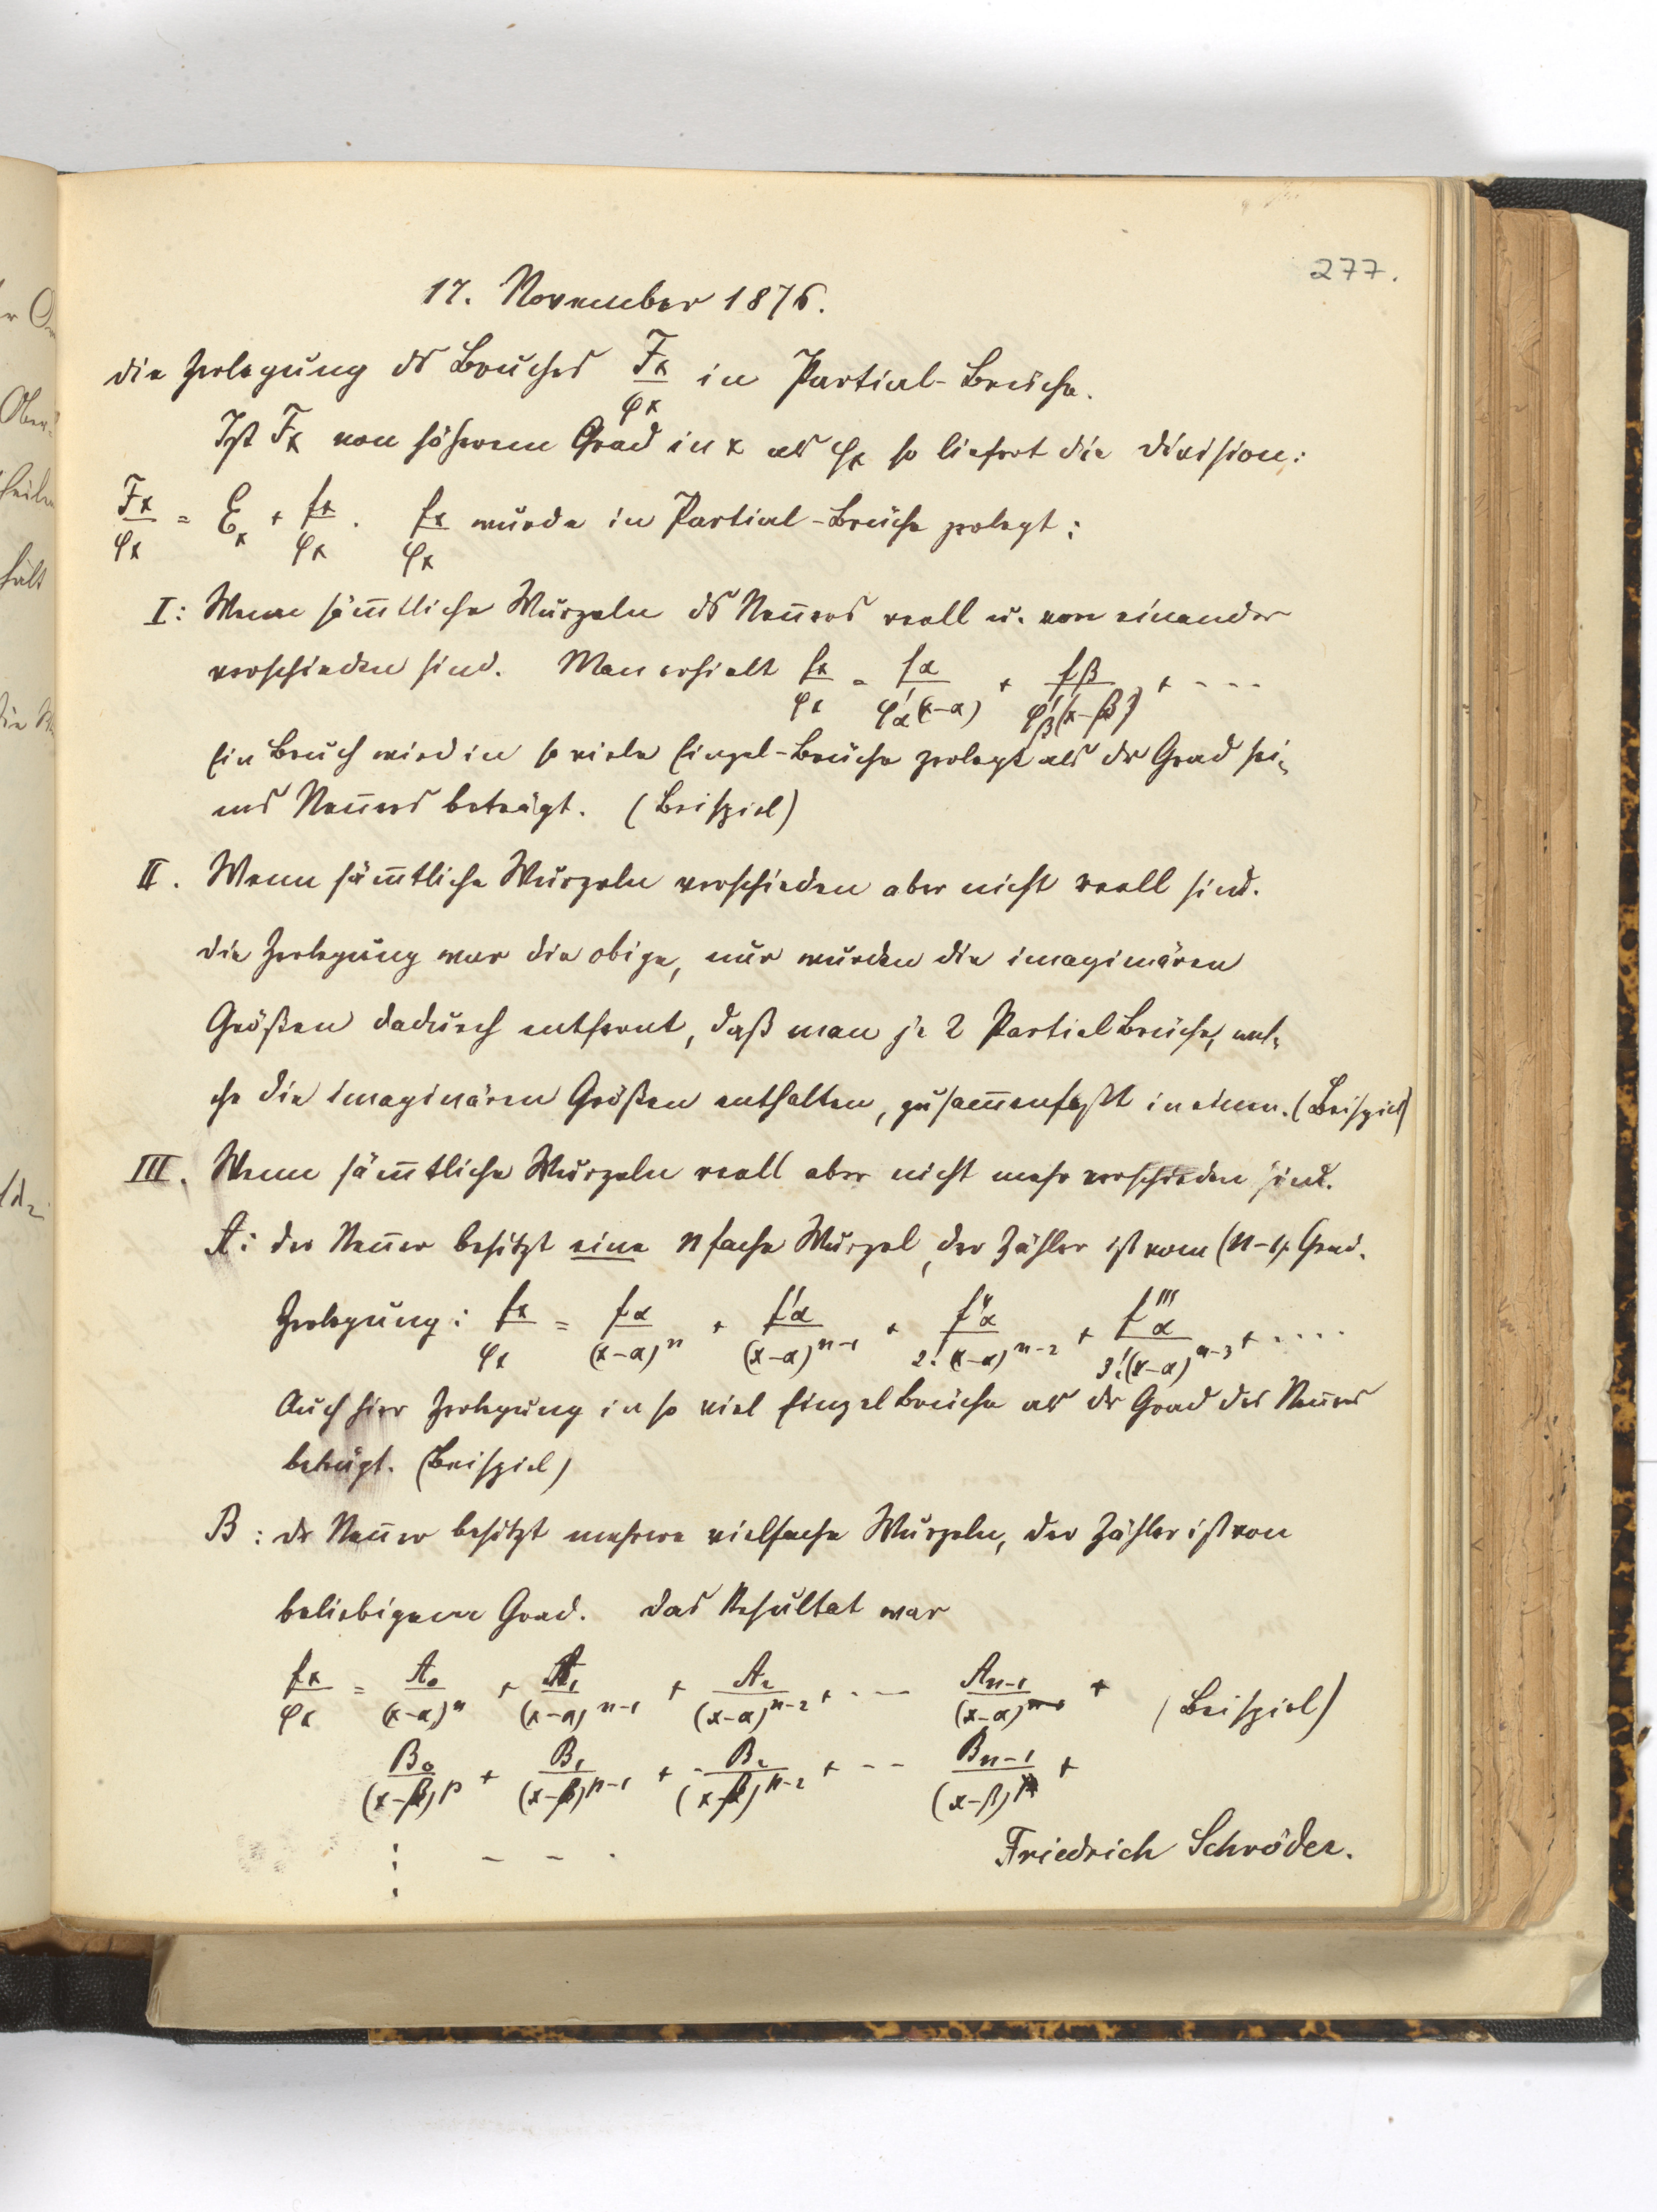 277.
17. November 1876.
Die Zerlegung ds Bruches Fx/φx in Partial-Brüche.
Ist Fx von höherem Grad in x als φx so liefert die Division:
Fx/φx = Ex + fx/φx. fx/φx wurde in Partial-Brüche zerlegt:
I: Wenn sämmtliche Wurzeln ds Nenners reell u. von einander
verschieden sind. Man erhielt fx/φx = fα/φ'α(x-α) + fβ/φ'β(x-β) + ----
Ein Bruch wird in so viele Einzel-Brüche zerlegt als dr Grad sei-
nes Nenners beträgt. (Beispiel)
II. Wenn sämmtliche Wurzeln verschieden aber nicht reell sind.
Die Zerlegung war die obige, nur wurden die imaginären
Größen dadurch entfernt, daß man je 2 Partialbrüche, wel-
che die imaginären Größen enthalten, zusammenfaßt in einen. (Beispiel)
III. Wenn sämmtliche Wurzeln reell aber nicht mehr verschieden sind.
A: Der Nenner besitzt eine n fache Wurzel, der Zähler ist vom (n-1). Grad.
Zerlegung: fx/φx = fα/(x-α)^n + f'α/(x-α)^n-1 + f''α/2!(x-α)^n-2 + f'''α/3!(x-α)^n-3 + ....
Auch hier Zerlegung in so viel Einzelbrüche als dr Grad des Nenners
beträgt. (Beispiel)
B: Dr Nenner besitzt mehrere vielfache Wurzeln, der Zähler ist von
beliebigem Grad. Das Resultat war
fx/φx = A0/(x-α)^n + A1/(x-α)^n-1 + A2/(x-α)^n-2 + --- An-1/(x-α) + (Beispiel)
B0/(x-β)^p + B1/(x-β)^p-1 + B2/(x-β)^p-2 + --- Bn-1/(x-β) +
⋮ - - .
Friedrich Schröder.